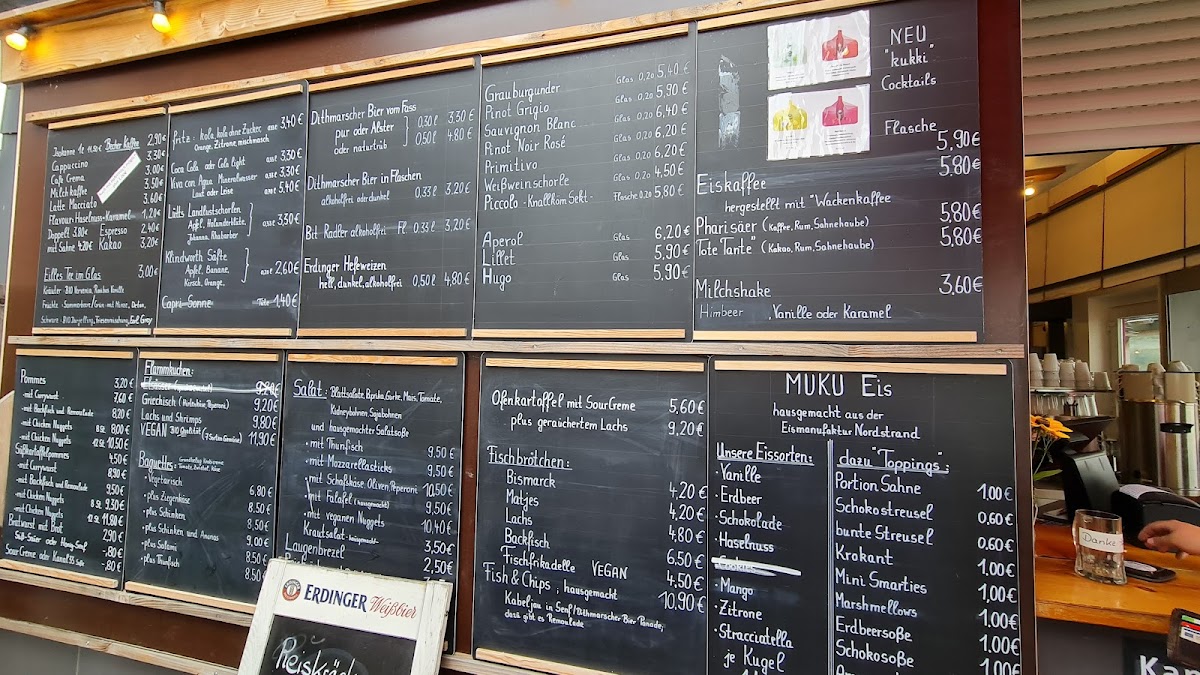 Becher Kaffee 2,90€
Cappuccino 3,30€
Cafe Crema 3,00€
Milch kaffee 3,50€
Latte Macciato 3,60€
Flavour: Haselnuss-Karamel 1,20€
Doppelt 3.80€ Espresso 2,40€
mit Sahne 4.20€ Kakao 3,20€
Eilles Tee im Glas 3,00€
fritz: kola, kola ohne Zucker, 3,40€
Orange, Zitrone, mischmasch
Coca Cola oder Cola light 3,30€
Viva con Agua Mineralwasser 3,30€
Laut oder Leise 5,40€
Lütts Landlustschorlen
Apfel, Holunderblüte, 3,30€
Johanna, Rhabarber
Klindworth Säfte
Apfel, Banane, 2,60€
Kirsch, Orange,
Capri-Sonne 1,40€
Dithmarscher Bier vom Fass
pur oder Alster 0,30l 3,30€
oder naturtrüb 0,50l 4.80€
Dithmarscher Bier in Flaschen
alkoholfrei oder dunkel 0.33l 3,20€
Bit Radler alkoholfrei Fl 0.33l 3,20€
Erdinger Hefeweizen
hell, dunkel, alkoholfrei 0,50l 4,80€
Grauburgunder Glas 0,20 5,40€
Pinot Grigio Glas 0,20 5,90€
Sauvignon Blanc Glas 0,20 6,40€
Pinot Noir Rosé Glas 0,20 6,20€
Primitivo Glas 0,20 6,20€
Weißweinschorle Glas 0,20 4,50€
Piccolo-Knallkom Sekt- Flasche 0,20 5,80€
Aperol Glas 6,20€
Lillet Glas 5,90€
Hugo Glas 5,90€
NEU
"kukki"
Cocktails
Flasche 5,90€
Eiskaffee 5.80€
hergestellt mit "Wackenkaffee
Pharisäer (Kaffee, Rum, Sahnehaube) 5,80€
Tote Tante" (Kakao, Rum, Sahnehaube) 5,80€
Milchshake 3,60€
Himbeer , Vanille oder Karamel
Pommes 3,20€
-mit Currywurst 7.60€
-mit Backfisch und Remoulade 8.20€
-mit Chicken Nuggets 6 St. 8.00€
-mit Chicken Nuggets 12 St. 10,50€
Süßkartoffelpommes 4,50€
-mit Currywurst 8,90€
-mit Backfisch und Remoulade 9.50€
-mit Chicken Nuggets 8 St. 9.30€
-mit Chicken Nuggets 12 St. 11.80€
Bratwurst mit Brot 2,90€
Süß-Sauer oder Honig-Senf -80€
Sour Creme oder -80€
Flammkuchen:
9,20€
Griechisch 9,20€
Lachs und Shrimps 9,80€
VEGAN 11,90€
Baguettes:
-Vegetarisch 6.80€
-plus Ziegenkäse 8.50€
-plus Schinken 8.50€
-plus Schinken und Ananas 9.00€
-plus Salami 8.50€
-plus Thunfisch 8.50€
Salat: Blattsalate, Paprika, Gurke, Mais, Tomate,
Kidneybohnen, Sojabohnen
und hausgemachter Salatsoße
-mit Thunfisch 9,50€
-mit Mozzarellasticks 9,50€
-mit Schafskäse Oliven, Peperoni 10,50€
-mit Falafel (hausgemacht) 9,50€
-mit veganen Nuggets 10,40€
Krautsalat -hausgemacht- 3,50€
Laugenbrezel 2,50€
Ofenkartoffel mit SourCreme 5,60€
plus geräuchertem Lachs 9,20€
Fischbrötchen:
Bismarck 4,20€
Matjes 4,20€
Lachs 4,80€
Backfisch 4,80€
Fischfrikadelle VEGAN 6,50€
4,50€
Fish & Chips, hausgemacht 10,90€
Kabeljau in Senf/Dithmarscher Bier Panade,
dazu gibt es Remoulade
MUKU Eis
hausgemacht aus der
Eismanufaktur Nordstrand
Unsere Eissorten:
· Vanille
· Erdbeer
· Schokolade
· Haselnuss
· Cookies
· Mango
· Zitrone
· Stracciatella
je Kugel
dazu "Toppings":
Portion Sahne 1.00€
Schokostreusel 0.60€
bunte Streusel 0.60€
Krokant 1.00€
Mini Smarties 1,00€
Marshmellows 1.00€
Erdbeersoße 1.00€
Schokosoße 1.00€
ERDINGER Weißbier
Danke
Kar